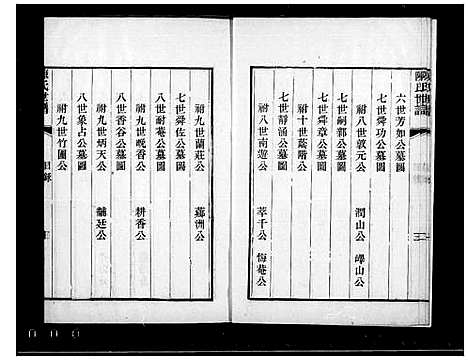 陳氏世譜
六世芳如公墓圖
七世舜功公墓圖
祔八世敦元公 潤山公 嶧山公
七世嗣鄒公墓圖
七世舜章公墓圖
祔十世蔭階公
七世靜涵公墓圖
祔八世南遊公 萃千公 悔菴公
祔九世蘭莊公 鄴洲公
七世舜佐公墓圖
八世耐菴公墓圖
祔九世晚香公 耕香公
八世香谷公墓圖
祔九世炳天公 黼廷公
八世象占公墓圖
祔九世竹圃公
陳氏世譜 目錄